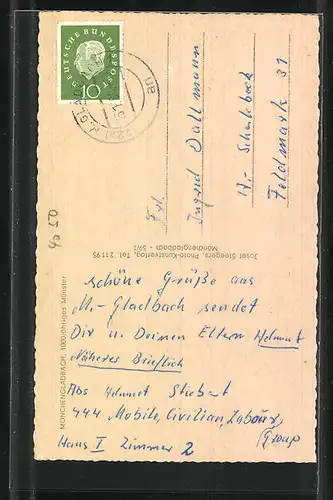 DEUTSCHE BUNDESPOST
10
(22a) M.GLADB
Frl.
Ingrid Dallmann
Feldmark 31
Josef Steegers, Photo-Kunstverlag, Tel. 21195
Mönchengladbach - 59/1
MÖNCHENGLADBACH, 1000jähriges Münster
40 50
schöne Grüße aus
M.-Gladbach sendet
Dir u. Deinen Eltern Helmut
Näheres Brieflich
Abs Helmut Stiebat
444 Mobile, Civilian, Labour,
Group
Haus I Zimmer 2